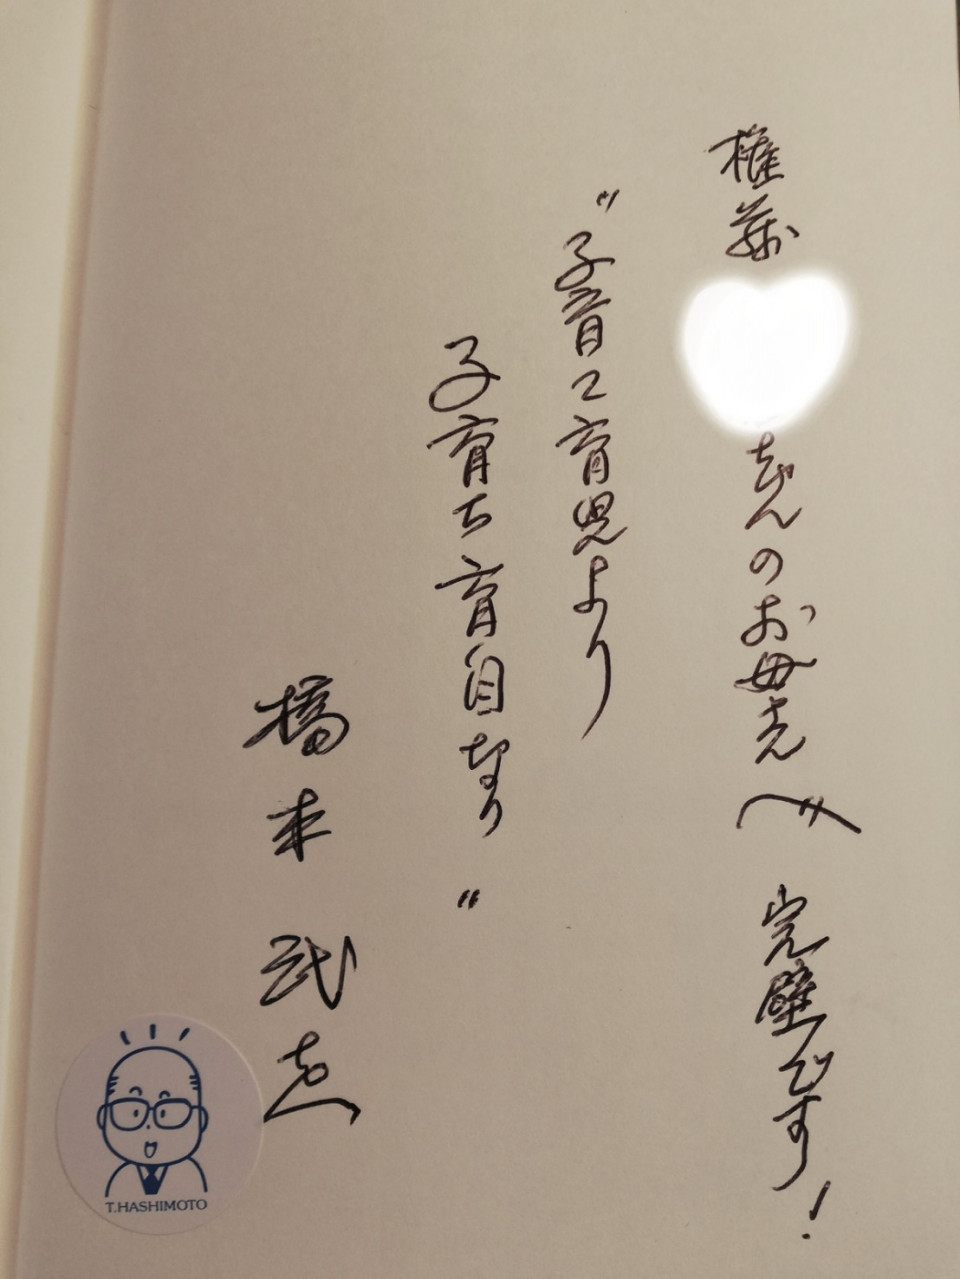 権藤 さんのお母さんへ 完璧です!
"子育て育児より
子育ち育自なり"
橋本武志
T.HASHIMOTO